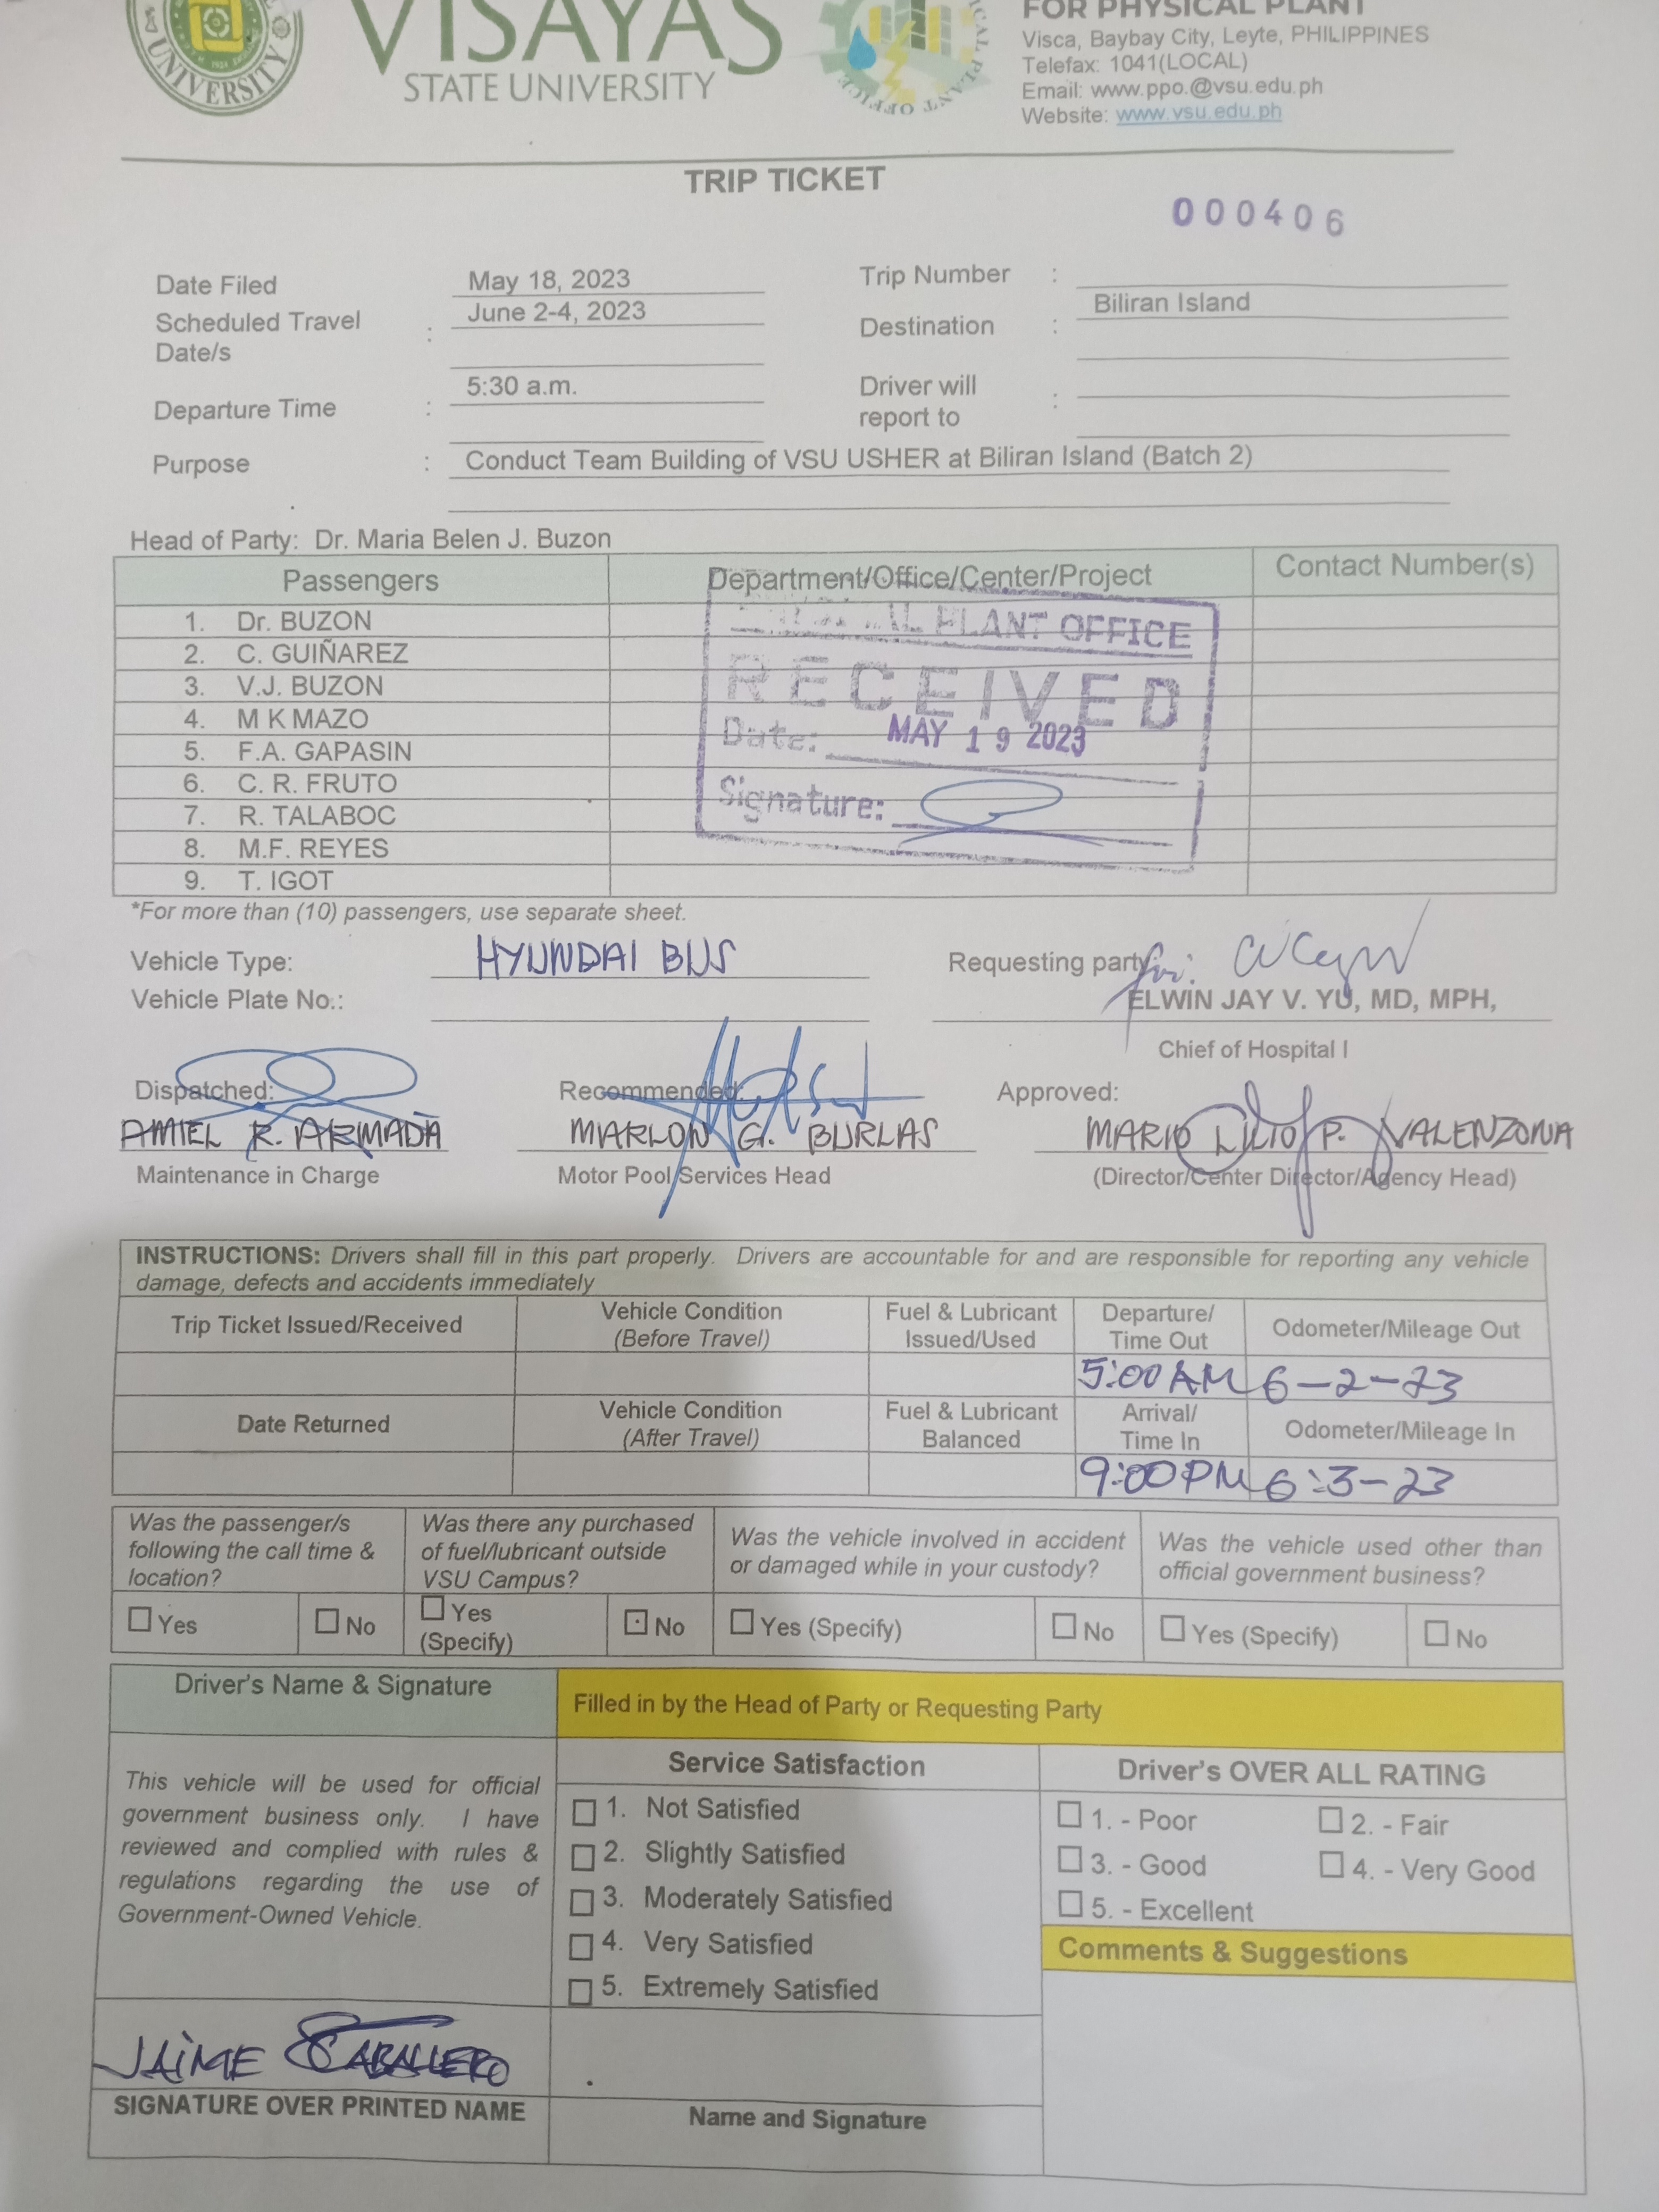 VISAYAS
STATE UNIVERSITY
UNIVERSITY
FOR PHYSICAL PLANT
Visca, Baybay City, Leyte, PHILIPPINES
Telefax: 1041(LOCAL)
Email: www.ppo.@vsu.edu.ph
Website: www.vsu.edu.ph
TRIP TICKET
000406
Date Filed May 18, 2023 Trip Number :
Scheduled Travel Date/s : June 2-4, 2023 Destination : Biliran Island
Departure Time : 5:30 a.m. Driver will report to :
Purpose : Conduct Team Building of VSU USHER at Biliran Island (Batch 2)
Head of Party: Dr. Maria Belen J. Buzon
Passengers Department/Office/Center/Project Contact Number(s)
1. Dr. BUZON
2. C. GUIÑAREZ
3. V.J. BUZON
4. M K MAZO
5. F.A. GAPASIN
6. C. R. FRUTO
7. R. TALABOC
8. M.F. REYES
9. T. IGOT
PLANT OFFICE
RECEIVED
Date: MAY 19 2023
Signature:
*For more than (10) passengers, use separate sheet.
Vehicle Type: HYUNDAI BUS Requesting party
for:
Vehicle Plate No.: ELWIN JAY V. YU, MD, MPH,
Chief of Hospital I
Dispatched: Recommended: Approved:
AMIEL R. ARMADA MARLON G. BURLAS MARIO LILIO P. VALENZONA
Maintenance in Charge Motor Pool Services Head (Director/Center Director/Agency Head)
INSTRUCTIONS: Drivers shall fill in this part properly. Drivers are accountable for and are responsible for reporting any vehicle
damage, defects and accidents immediately
Trip Ticket Issued/Received Vehicle Condition (Before Travel) Fuel & Lubricant Issued/Used Departure/ Time Out Odometer/Mileage Out
5:00 AM 6-2-23
Date Returned Vehicle Condition (After Travel) Fuel & Lubricant Balanced Arrival/ Time In Odometer/Mileage In
9:00 PM 6:3-23
Was the passenger/s following the call time & location? Was there any purchased of fuel/lubricant outside VSU Campus? Was the vehicle involved in accident or damaged while in your custody? Was the vehicle used other than official government business?
Yes No Yes (Specify) No Yes (Specify) No Yes (Specify) No
Driver's Name & Signature Filled in by the Head of Party or Requesting Party
This vehicle will be used for official
government business only. I have
reviewed and complied with rules &
regulations regarding the use of
Government-Owned Vehicle.
Service Satisfaction
1. Not Satisfied
2. Slightly Satisfied
3. Moderately Satisfied
4. Very Satisfied
5. Extremely Satisfied
Driver's OVER ALL RATING
1. - Poor 2. - Fair
3. - Good 4. - Very Good
5. - Excellent
Comments & Suggestions
JAIME CABALLERO
SIGNATURE OVER PRINTED NAME Name and Signature